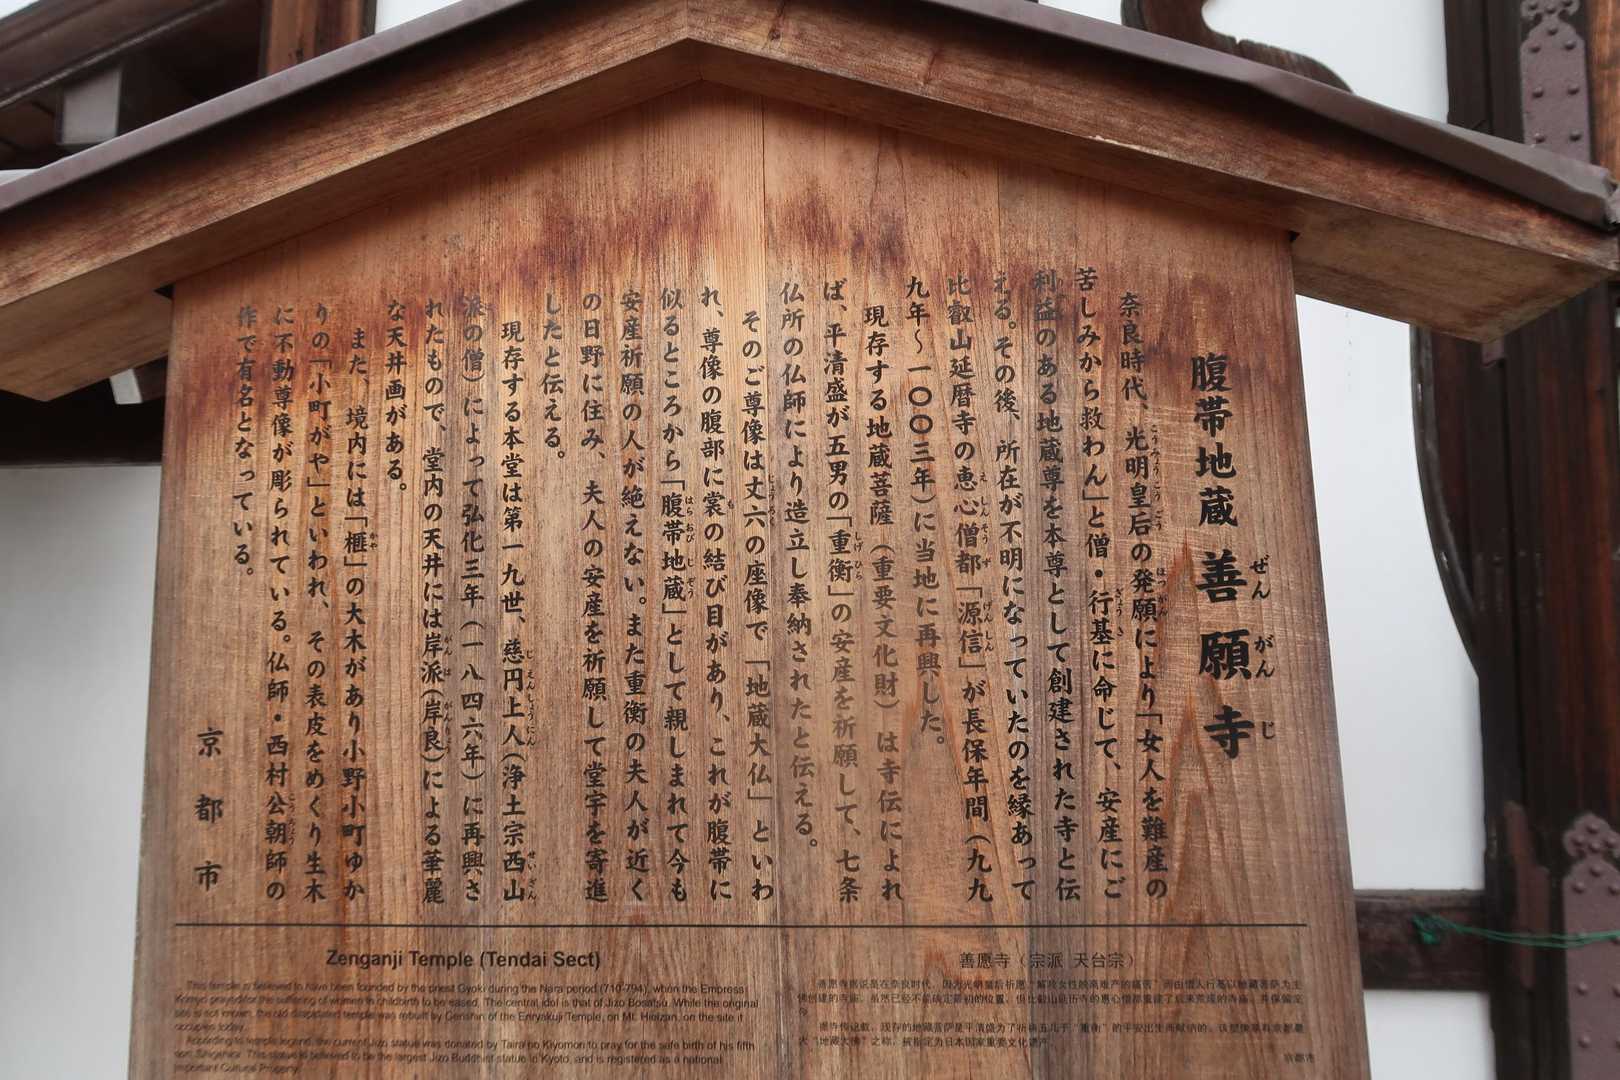 腹帯地蔵 善願寺
奈良時代、光明皇后の発願により「女人を難産の
苦しみから救わん」と僧・行基に命じて、安産にご
利益のある地蔵尊を本尊として創建された寺と伝
える。その後、所在が不明になっていたのを縁あって
比叡山延暦寺の恵心僧都「源信」が長保年間（九九
九年～一〇〇三年）に当地に再興した。
現存する地蔵菩薩（重要文化財）は寺伝によれ
ば、平清盛が五男の「重衡」の安産を祈願して、七条
仏所の仏師により造立し奉納されたと伝える。
そのご尊像は丈六の座像で「地蔵大仏」といわ
れ、尊像の腹部に裳の結び目があり、これが腹帯に
似るところから「腹帯地蔵」として親しまれて今も
安産祈願の人が絶えない。また重衡の夫人が近く
の日野に住み、夫人の安産を祈願して堂宇を寄進
したと伝える。
現存する本堂は第一九世、慈円上人（浄土宗西山
派の僧）によって弘化三年（一八四六年）に再興さ
れたもので、堂内の天井には岸派（岸良）による華麗
な天井画がある。
また、境内には「榧」の大木があり小野小町ゆか
りの「小町がや」といわれ、その表皮をめくり生木
に不動尊像が彫られている。仏師・西村公朝師の
作で有名となっている。
京都市
Zenganji Temple (Tendai Sect)
This temple is believed to have been founded by the priest Gyoki during the Nara period (710-794), when the Empress
Komyo prayed for the suffering of women in childbirth to be eased. The central idol is that of Jizo Bosatsu. While the original
site is not known, the old dilapidated temple was rebuilt by Genshin of the Enryakuji Temple, on Mt. Hieizan, on the site it
occupies today.
According to temple legend, the current Jizo statue was donated by Taira no Kiyomori to pray for the safe birth of his fifth
son, Shigehira. This statue is believed to be the largest Jizo Buddhist statue in Kyoto, and is registered as a national
Important Cultural Property.
善愿寺（宗派 天台宗）
京都市